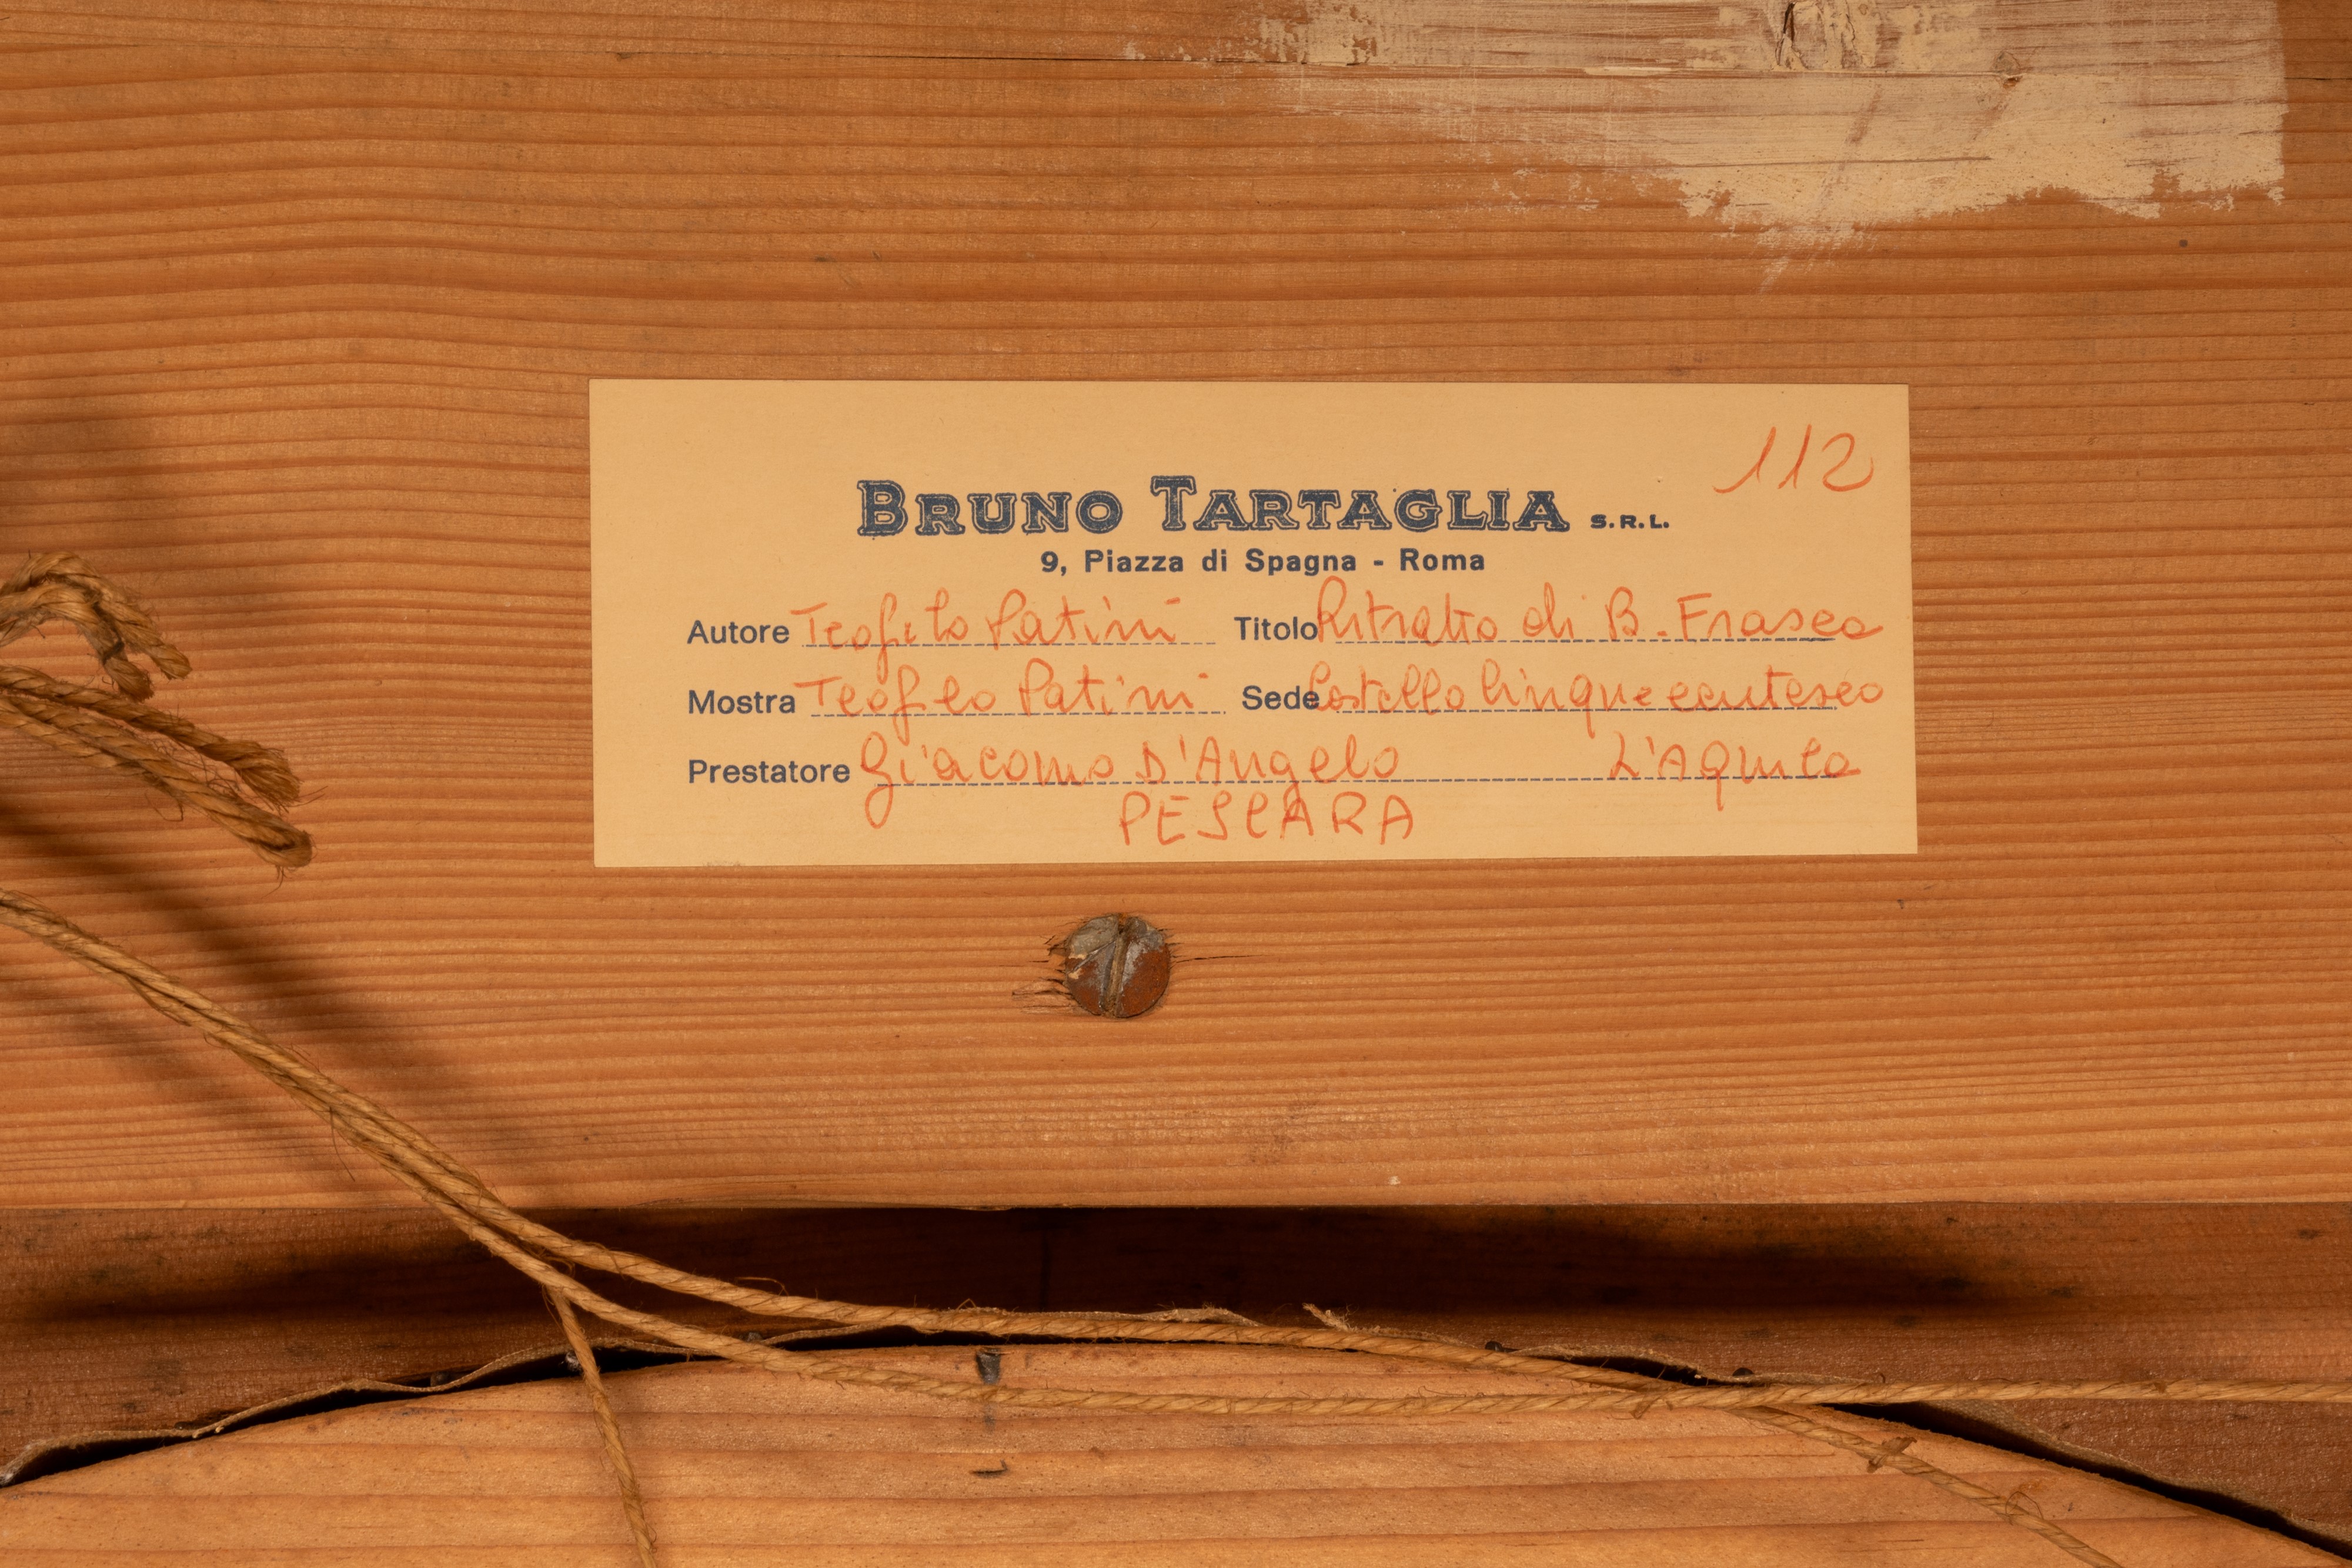 112
BRUNO TARTAGLIA S.R.L.
9, Piazza di Spagna - Roma
Autore Teofilo Patini Titolo Ritratto di B. Frasca
Mostra Teofilo Patini Sede Castello Cinquecentesco
Prestatore Giacomo D'Angelo L'Aquila
PESCARA